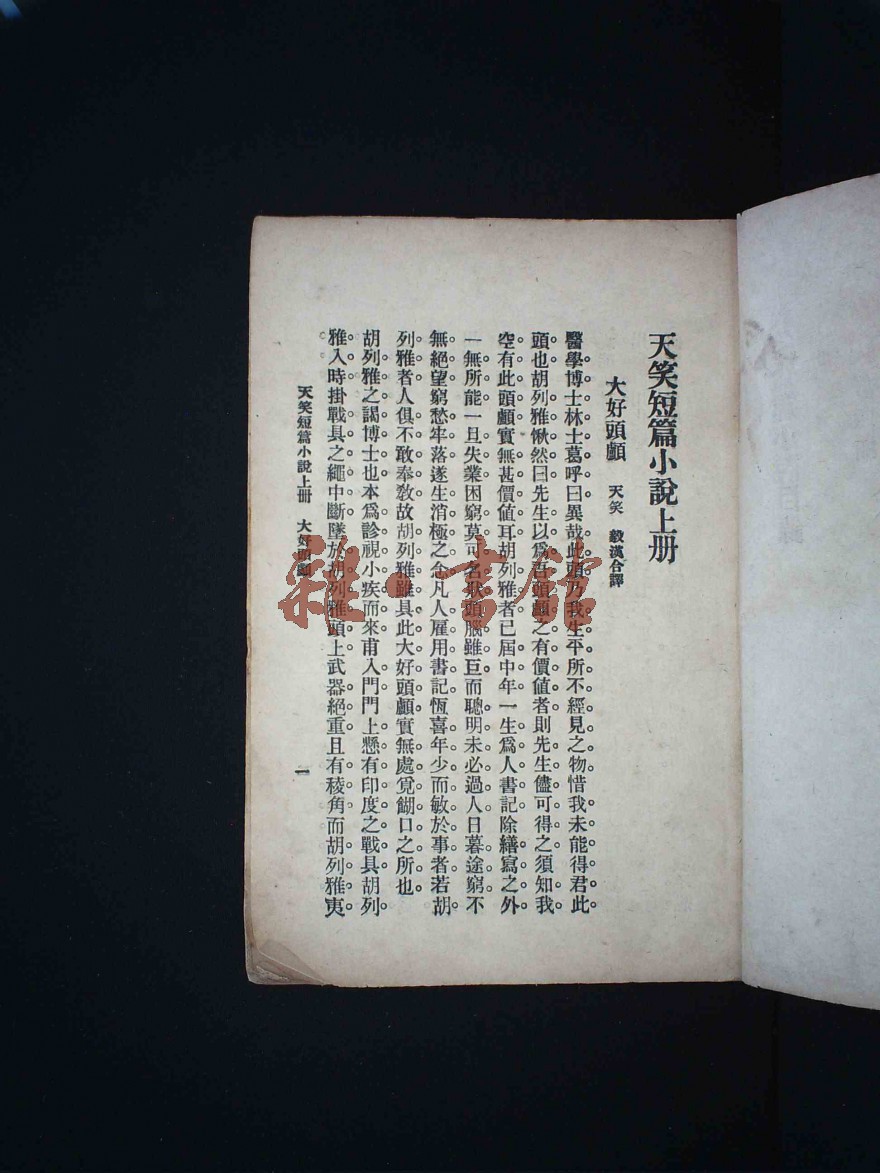 天笑短篇小說上册
大好頭顱 天笑 毅漢合譯
醫學博士林士葛呼曰異哉此頭乃我生平所不經見之物惜我未能得君此
頭也胡列雅愀然曰先生以爲吾頭顱之有價値者則先生儘可得之須知我
空有此頭顱實無甚價値耳胡列雅者已屆中年一生爲人書記除繕寫之外
一無所能一旦失業困窮莫可名狀頭腦雖巨而聰明未必過人日暮途窮不
無絕望窮愁牢落遂生消極之念凡人雇用書記恆喜年少而敏於事者若胡
列雅者人俱不敢奉敎故胡列雅雖具此大好頭顱實無處覓餬口之所也
胡列雅之謁博士也本爲診視小疾而來甫入門門上懸有印度之戰具胡列
雅入時掛戰具之繩中斷墜於胡列雅頭上武器絕重且有稜角而胡列雅夷
天笑短篇小說上册 大好頭顱
一
雜·書館